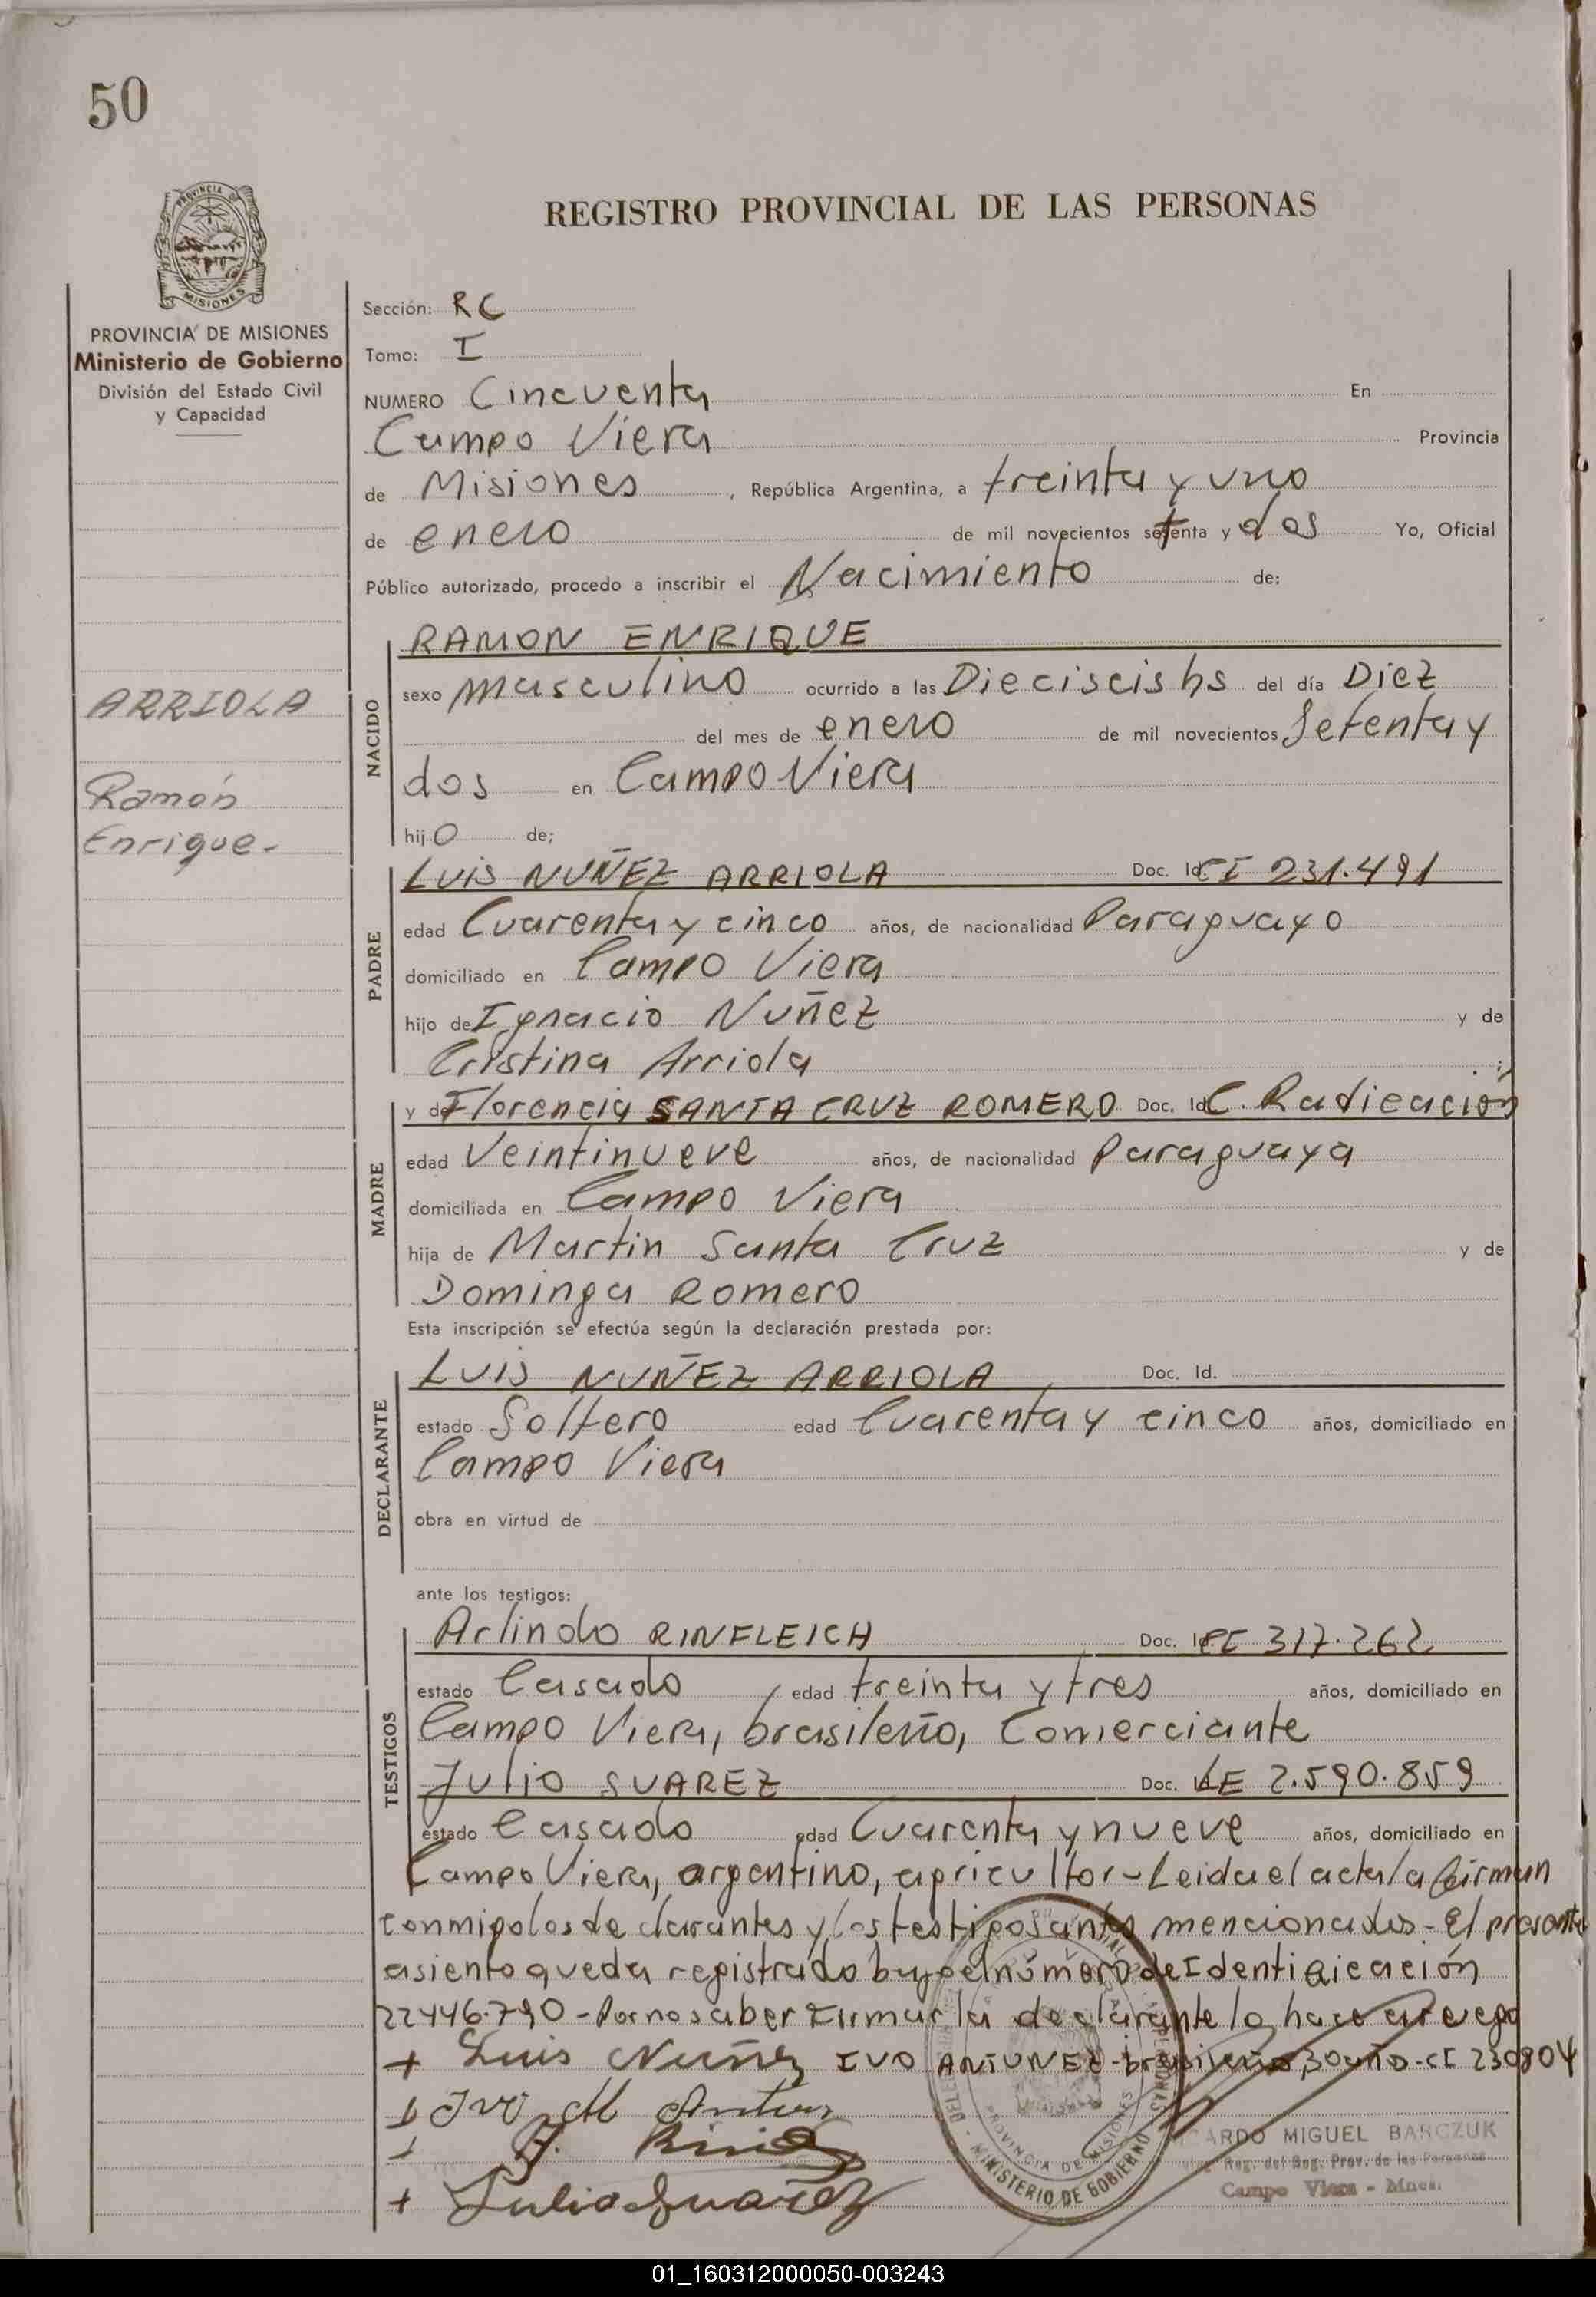 50
PROVINCIA DE MISIONES
Ministerio de Gobierno
División del Estado Civil
y Capacidad
ARRIOLA
Ramón
Enrique-
REGISTRO PROVINCIAL DE LAS PERSONAS
Sección: RC
Tomo: I
NUMERO Cincuenta En
Campo Viera Provincia
de Misiones, República Argentina, a treinta y uno
de enero de mil novecientos setenta y dos Yo, Oficial
Público autorizado, procedo a inscribir el Nacimiento de:
NACIDO
RAMON ENRIQUE
sexo masculino ocurrido a las Dieciseis hs del día Diez
del mes de enero de mil novecientos Setenta y
dos en Campo Viera
hijo de;
PADRE
LUIS NUÑEZ ARRIOLA Doc. Id. CI 231.491
edad Cuarenta y cinco años, de nacionalidad Paraguayo
domiciliado en Campo Viera
hijo de Ignacio Nuñez y de
Cristina Arriola
MADRE
y de Florencia SANTA CRUZ ROMERO Doc. Id. C. Radicación
edad Veintinueve años, de nacionalidad Paraguaya
domiciliada en Campo Viera
hija de Martin Santa Cruz y de
Dominga Romero
Esta inscripción se efectúa según la declaración prestada por:
DECLARANTE
LUIS NUÑEZ ARRIOLA Doc. Id.
estado Soltero edad Cuarenta y cinco años, domiciliado en
Campo Viera
obra en virtud de
ante los testigos:
TESTIGOS
Arlindo RINFLEICH Doc. Id. CI 317.262
estado Casado edad treinta y tres años, domiciliado en
Campo Viera, brasileño, Comerciante
Julio SUAREZ Doc. LE 2.590.859
estado Casado edad Cuarenta y nueve años, domiciliado en
Campo Viera, argentino, agricultor-Leida el acta la firman
conmigo los declarantes y los testigos antes mencionados- El presente
asiento queda registrado bajo el número de Identificación
22446.790-Por no saber firmar la declarante lo hace a ruego
+ Luis Nuñez IVO ANTUNEZ-brasileño, 30 año-CI 230804
+ Julio Suarez
MINISTERIO DE GOBIERNO
PROVINCIA DE MISIONES
MIGUEL BARCZUK
Reg. Prov. de las Personas
Campo Viera - Mnes.
01_160312000050-003243